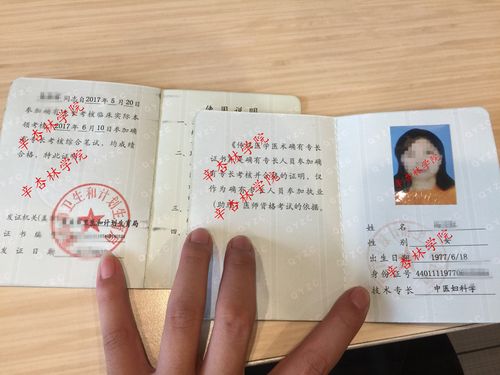 同志自2017年5月20日
参加确 考核临床实际本
领考核 2017年6月10日参加确
考核综合笔试，均成绩
合格，特此证
卫生和计划生
发证机关(盖 生和计划生育局
证书编
发证日期
使用说明
一、
二、
三、
四、
《传统医学医术确有专长
证书》是确有专长人员参加确
有专长考核并合格的证明，仅
作为确有专长人员参加执业
(助理)医师资格考试的依据。
姓名
性别
出生日期 1977/6/18
身份证号 44011119770
技术专长 中医妇科学
辛杏林学院
辛杏林学院
辛杏林学院
辛杏林学院
辛杏林学院
QYZC